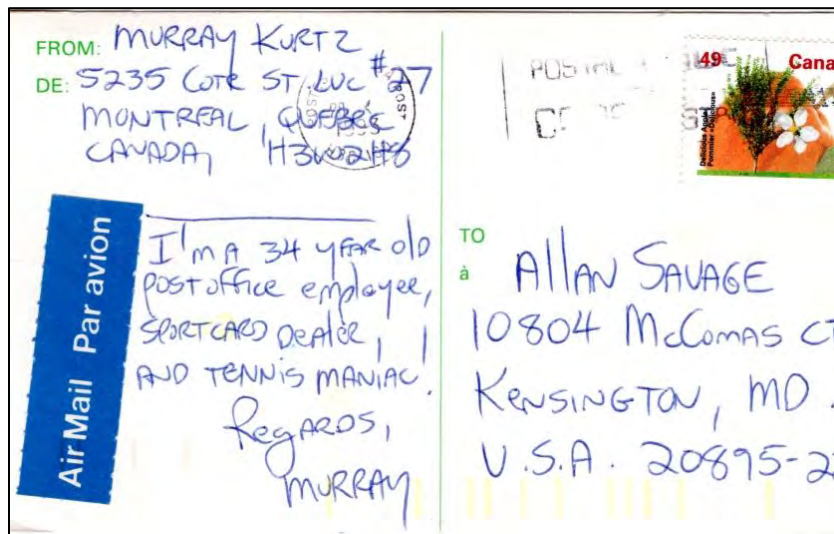 FROM: MURRAY KURTZ
DE: 5235 COTE ST. LUC #27
MONTREAL, QUEBEC
CANADA, H3W 2H8
Air Mail Par avion
I'm A 34 YEAR old
post office employee,
SPORTCARD DEALER,
AND TENNIS MANIAC!
Regards,
MURRAY
49 Canad
Delicious Apple
Pommier «Delicious»
TO
à
Allan Savage
10804 McComas CT
Kensington, MD.
U.S.A. 20895-2